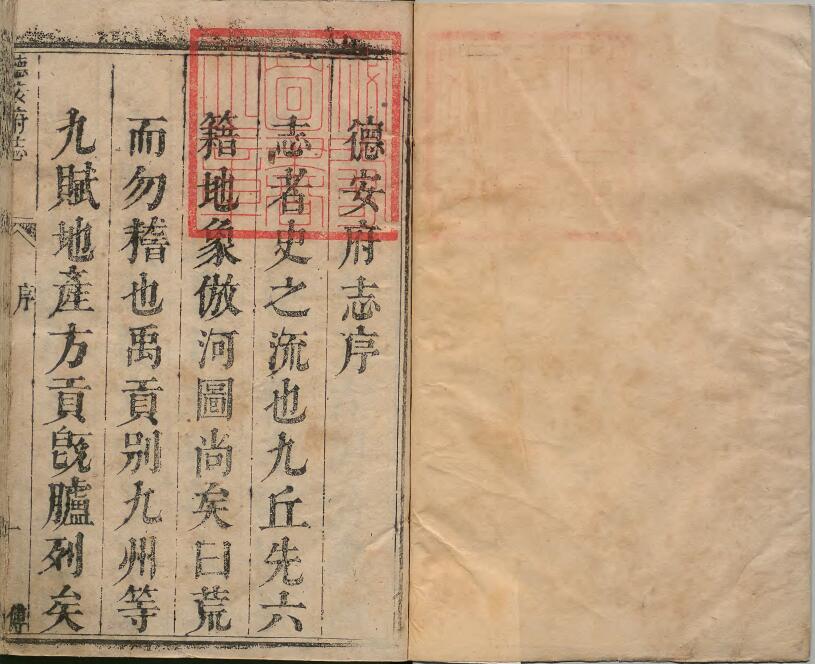 德安府志序
志者史之流也九丘先六
籍地象倣河圖尚矣曰荒
而勿稽也禹貢別九州等
九賦地產方貢旣臚列矣
德安府志
序
一
傅